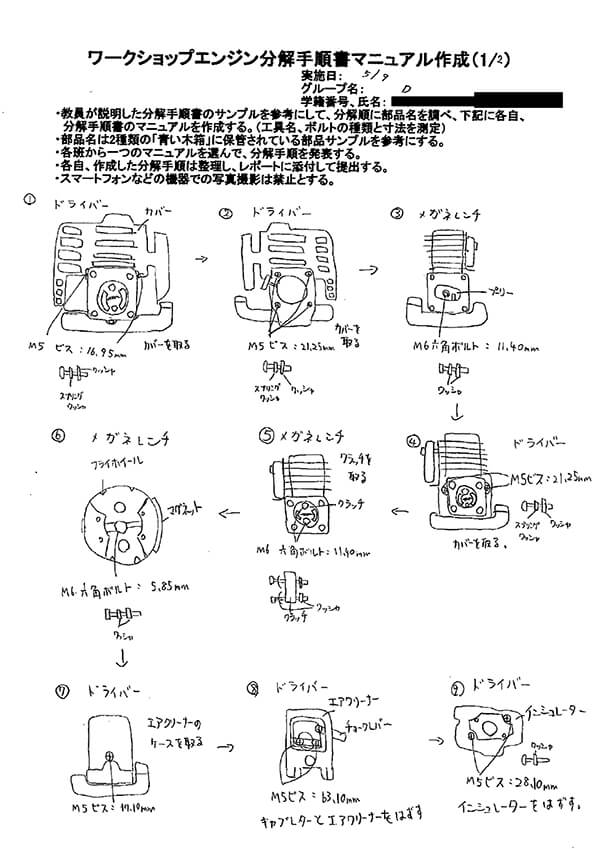 ワークショップエンジン分解手順書マニュアル作成(1/2)
実施日： 5/9
グループ名： D
学籍番号、氏名：
・教員が説明した分解手順書のサンプルを参考にして、分解順に部品名を調べ、下記に各自、
分解手順書のマニュアルを作成する。(工具名、ボルトの種類と寸法を測定)
・部品名は2種類の「青い木箱」に保管されている部品サンプルを参考にする。
・各班から一つのマニュアルを選んで、分解手順を発表する。
・各自、作成した分解手順は整理し、レポートに添付して提出する。
・スマートフォンなどの機器での写真撮影は禁止とする。
① ドライバー
カバー
M5 ビス：16.95mm
カバーを取る
ワッシャ
スプリング
ワッシャ
② ドライバー
M5ビス：21.25mm
カバーを
取る
スプリング
ワッシャ
ワッシャ
③ メガネレンチ
プリー
M6六角ボルト：11.40mm
ワッシャ
④ ドライバー
M5ビス：21.25mm
スプリング
ワッシャ
ワッシャ
カバーを取る。
⑤ メガネレンチ
クラッチを
取る
クラッチ
M6 六角ボルト：11.40mm
ワッシャ
クラッチ
⑥ メガネレンチ
フライホイール
マグネット
M6 六角ボルト：5.85mm
ワッシャ
⑦ ドライバー
エアクリーナーの
ケースを取る
M5ビス：17.10mm
⑧ ドライバー
エアクリーナー
チョークレバー
M5ビス：63.10mm
キャブレターとエアクリーナーをはずす
⑨ ドライバー
インシュレーター
ワッシャ
M5ビス：28.10mm
インシュレーターをはずす。